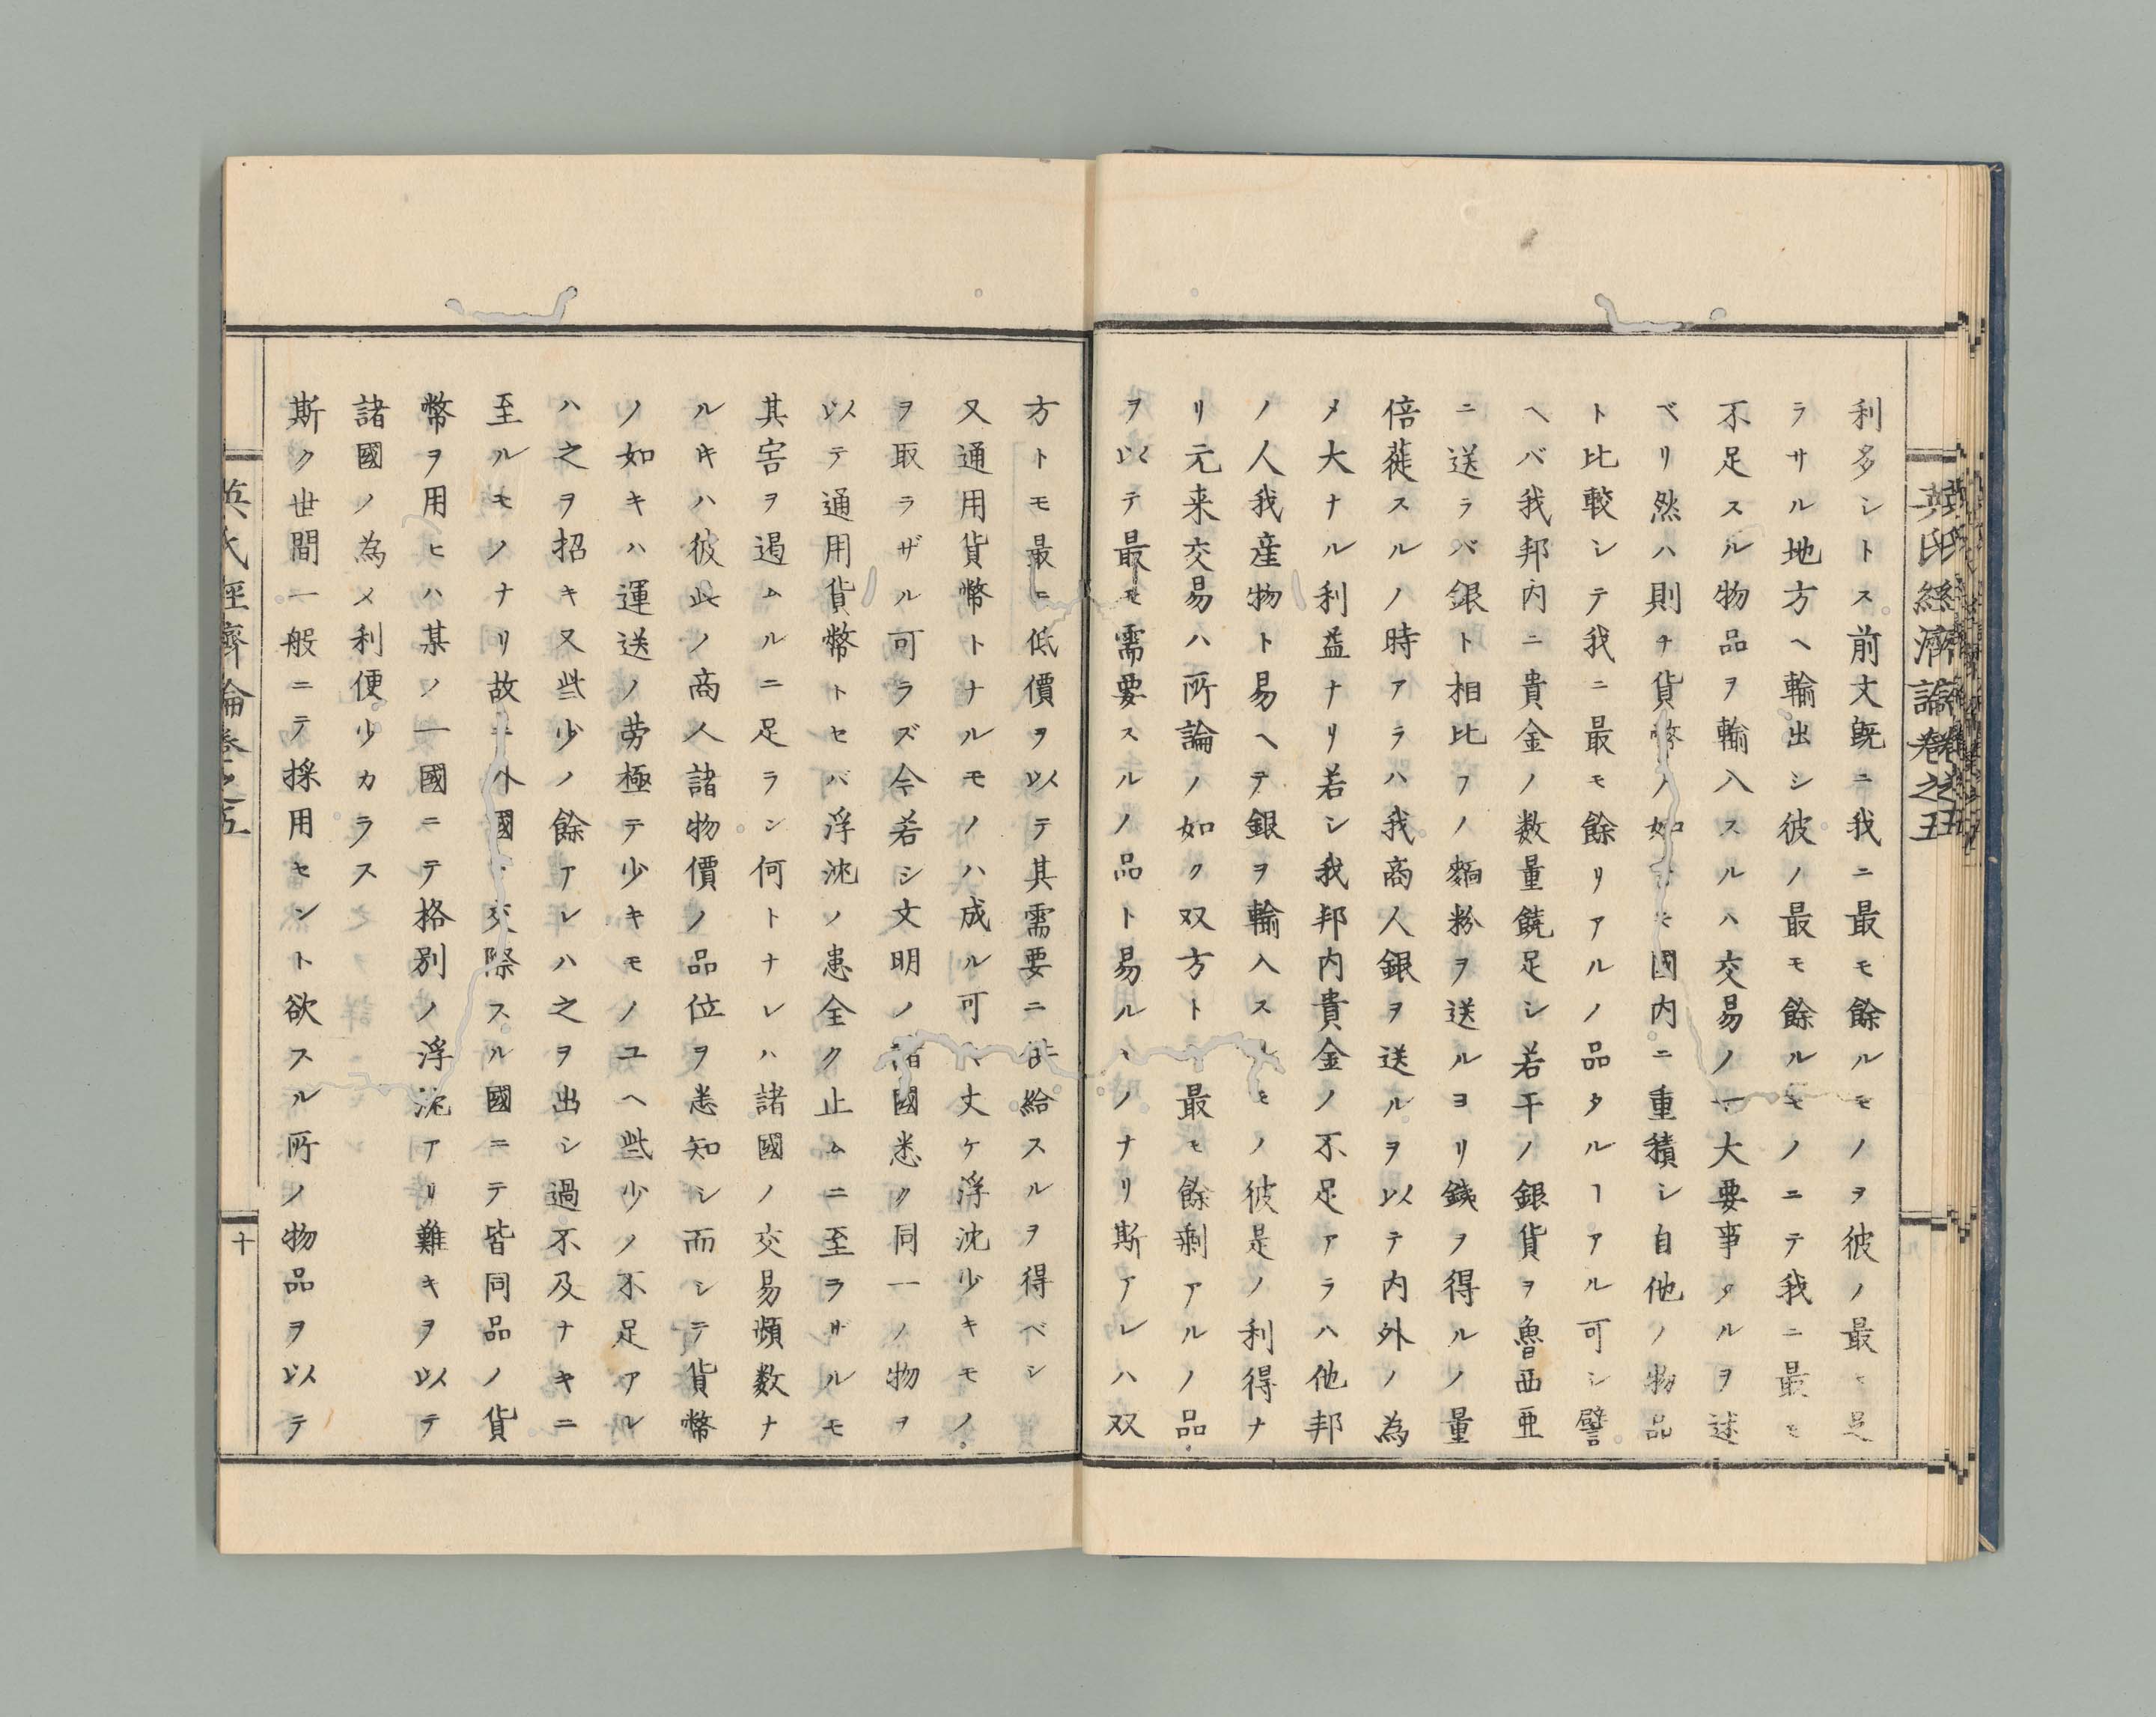 英氏經濟論卷之五
利多シトス前文既ニ我ニ最モ餘ルモノヲ彼ノ最モ足
ラサル地方ヘ輸出シ彼ノ最モ餘ルモノニテ我ニ最モ
不足スル物品ヲ輸入スルハ交易ノ一大要事タルヲ述
ベリ然ハ則チ貨幣ノ如キモ國内ニ重積シ自他ノ物品
ト比較シテ我ニ最モ餘リアルノ品タルヿアル可シ譬
ヘバ我邦内ニ貴金ノ数量饒足シ若干ノ銀貨ヲ魯西亜
ニ送ラバ銀ト相比フノ麵粉ヲ送ルヨリ銕ヲ得ルノ量
倍蓰スルノ時アラハ我商人銀ヲ送ルヲ以テ内外ノ為
メ大ナル利益ナリ若シ我邦内貴金ノ不足アラハ他邦
ノ人我産物ト易ヘテ銀ヲ輸入スルモノ彼是ノ利得ナ
リ元来交易ハ所論ノ如ク双方トモ最モ餘剰アルノ品
ヲ以テ最モ需要スルノ品ト易ルモノナリ斯アレハ双
方トモ最ニ低價ヲ以テ其需要ニ供給スルヲ得ベシ
又通用貨幣トナルモノハ成ル可ク丈ケ浮沈少キモノ
ヲ取ラザル可ラズ今若シ文明ノ諸國悉ク同一ノ物ヲ
以テ通用貨幣トセバ浮沈ノ患全ク止ムニ至ラサルモ
其害ヲ遏ムルニ足ラン何トナレハ諸國ノ交易頻数ナ
ルキハ彼此ノ商人諸物價ノ品位ヲ悉知シ而シテ貨幣
ノ如キハ運送ノ劳極テ少キモノユヘ些少ノ不足アレ
ハ之ヲ招キ又些少ノ餘アレハ之ヲ出シ過不及ナキニ
至ルモノナリ故ニ外國ト交際スル國ニテ皆同品ノ貨
幣ヲ用ヒハ某ノ一國ニテ格別ノ浮沈アリ難キヲ以テ
諸國ノ為メ利便少カラス
斯ク世間一般ニテ採用セント欲スル所ノ物品ヲ以テ
英氏經濟論卷之五
十